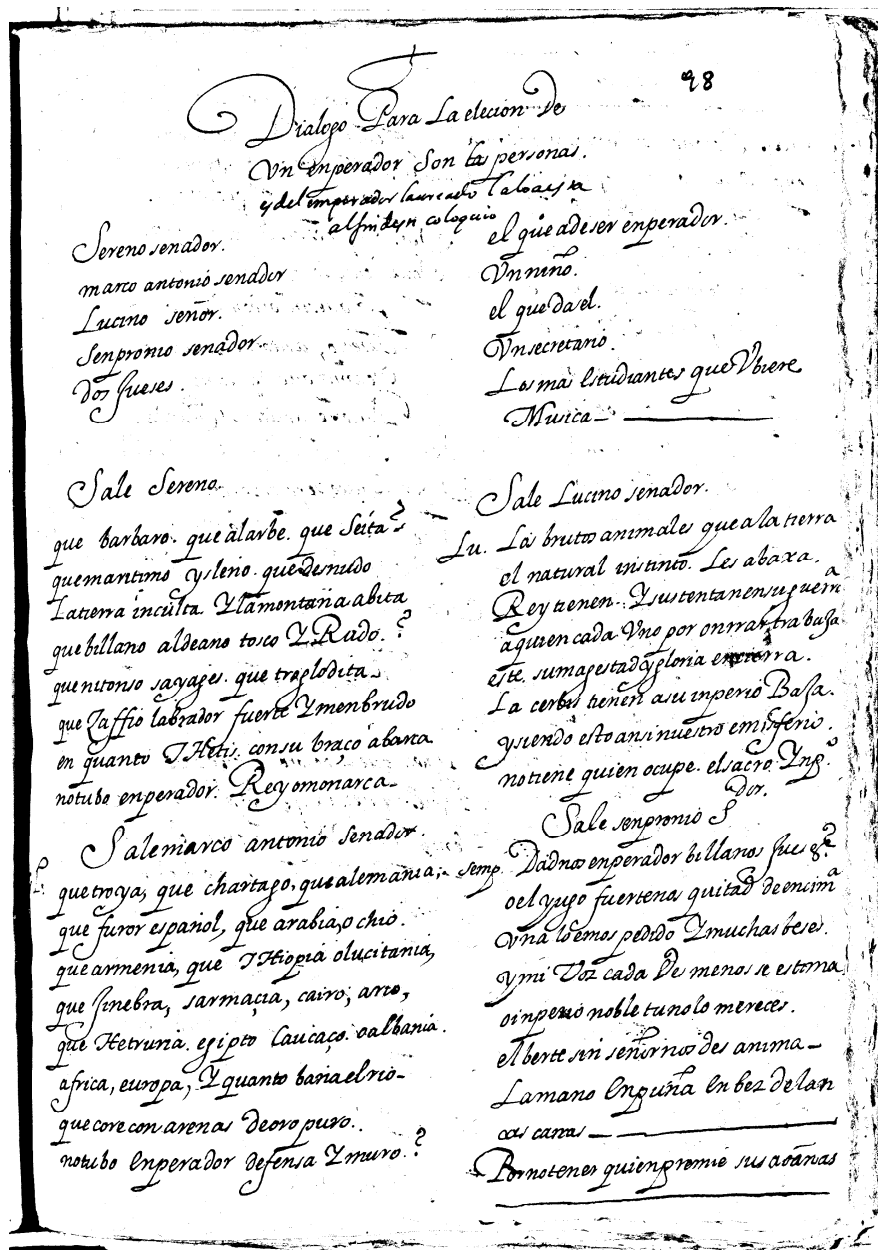 98
Dialogo Para La elecion De
Vn enperador Son las personas.
y del emperador laureado
al fin desta coloquio
Sereno senador.
marco antonio senador
Lucino señor.
Senpronio senador.
Dos Jueses.
el que a de ser enperador.
Vn niño.
el que da el.
Vn secretario.
Los mas Estudiantes que Vbiere
Musica
Sale Sereno.
que barbaro. que alarbe. que Seita?
que mantimo ysleno. que desnudo
La tierra inculta Y la montaña abita
que billano aldeano tosco Y Rudo.?
que nitonso sayages. que troglodita
que Zaffio labrador fuerte Y menbrudo
en quanto THetis. con su braço abarca
no tubo enperador. Rey o monarca
Sale marco antonio senador.
que troya, que chartago, que alemania,
que furor español, que arabia, o chio.
que armenia, que THiopia o lucitania,
que Jinebra, sarmaçia, cairo, ario,
que Hetruria. egipto Caucaço. o albania.
africa, europa, Y quanto baña el rio
que core con arenas de oro puro.
no tubo Enperador defensa Y muro.?
Sale Lucino senador.
Lu. Los brutos animales que a la tierra
el natural instinto. Les abaxa.
Rey tienen. Y sustentan en su guerra
a quien cada Vno por onrrar trabaja
este. su magestad y gloria encierra.
La cerbis tienen a su inperio Baja.
y siendo esto ansi nuestro emisferio.
no tiene quien ocupe. el sacro. Ynpº.
Sale senpronio Sdor.
Semp. Dadnos enperador billanos Jueses?
o el yugo fuerte nos quitad de encima
Vna lo emos pedido Y muchas beses.
y mi Voz cada Vez menos se estima
o inperio noble tu no lo mereces.
el berte sin señor nos des anima
La mano Enpuña En bez de lan
cas canas
Por no tener quien premie sus acanas